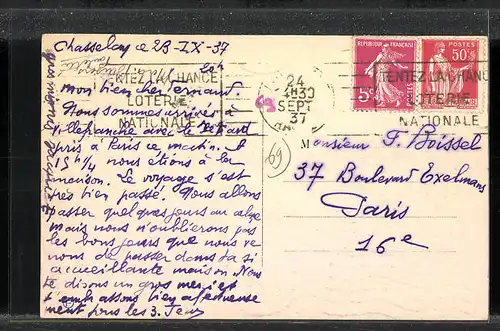 Chasselay ce 23-IX-37
mon bien cher
Nous sommes arrivés à
Villefranche avec le retard
pris à Paris ce matin. A
15h1/4 nous étions à la
maison. Le voyage s'est
très bien passé. Nous allons
passer quelques jours au calme
mais nous n'oublierons pas
les bons jours que nous ve
nons de passer dans ta si
accueillante maison. Nous
te disons un gros merci et
t'embrassons bien affectueuse
ment tous les 3.
TENTEZ LA CHANCE
LOTERIE
NATIONALE
24
4H30
SEPT
37
RÉPUBLIQUE FRANÇAISE
5c
50c
TENTEZ LA CHANCE
LOTERIE
NATIONALE
69
69
Monsieur F. Boissel
37 Boulevard Exelmans
Paris
16e